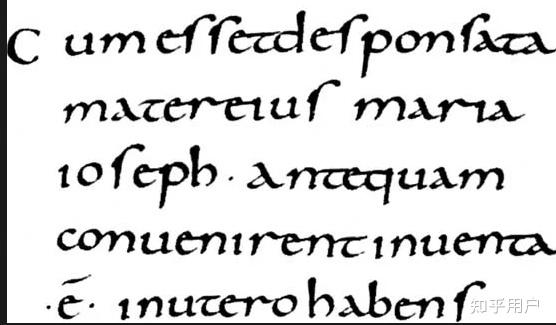 Cum eſſet deſponſata
mater eiuſ maria
ioſeph · antequam
conuenirent inuenta
· ē · in utero habenſ
知乎用户